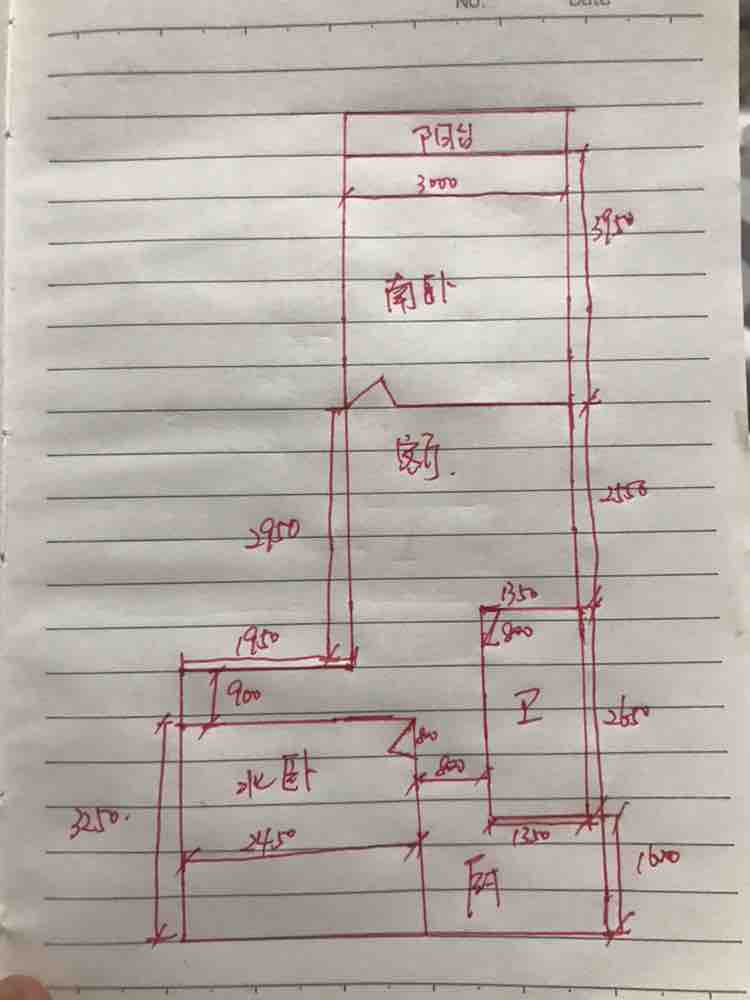 No.
Date
阳台
3000
3950
南卧
客厅.
2550
2950
1350
800
1950
900
卫
2650
800
800
卧
3250.
2450
1350
1600